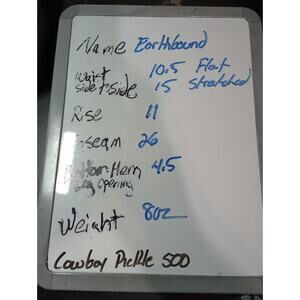 Name Earthbound
waist 10.5 Flat
side to side 15 Stretched
Rise 11
Inseam 26
Bottom Hem 4.5
Leg Opening
Weight 8oz
Cowboy Pickle 500